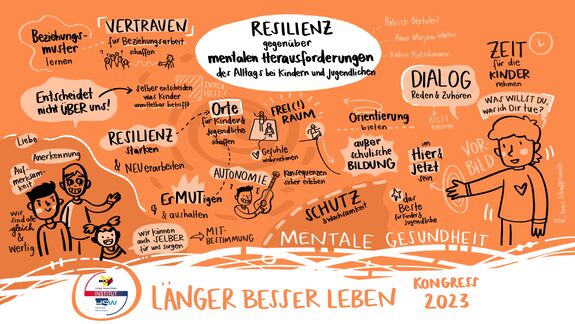 Beziehungs-
muster
lernen
VERTRAUEN
für Beziehungsarbeit
schaffen
RESILIENZ
gegenüber
mentalen Herausforderungen
des Alltags bei Kindern und Jugendlichen
ZEIT
für die
KINDER
nehmen
Entscheidet
nicht ÜBER uns!
selber entscheiden
was Kinder
unmittelbar betrifft
SICHER
HEIT
DIALOG
Reden & Zuhören
WAS WILLST DU,
was ich Dir tue?
HILFT
RESILIENZ
stärken
& NEU erarbeiten
Orte
für Kinder &
Jugendliche
schaffen
FREI(!)
RAUM
Gefühle
wahrnehmen
Orientierung
bieten
außer
schulische
BILDUNG
im
Hier &
Jetzt
sein
VOR-
BILD
Liebe
Anerkennung
Auf-
merksam-
keit
wir
sind alle
gleich &
Wertig
ErMUTigen
& aushalten
AUTONOMIE
Konsequenzen
sicher erleben
SCHUTZ
& Wachsamkeit
das
Beste
für Kinder &
Jugendliche
wir können
auch SELBER
für uns sorgen
MIT-
BESTIMMUNG
MENTALE GESUNDHEIT
INSTITUT
LÄNGER BESSER LEBEN
KONGRESS
2023